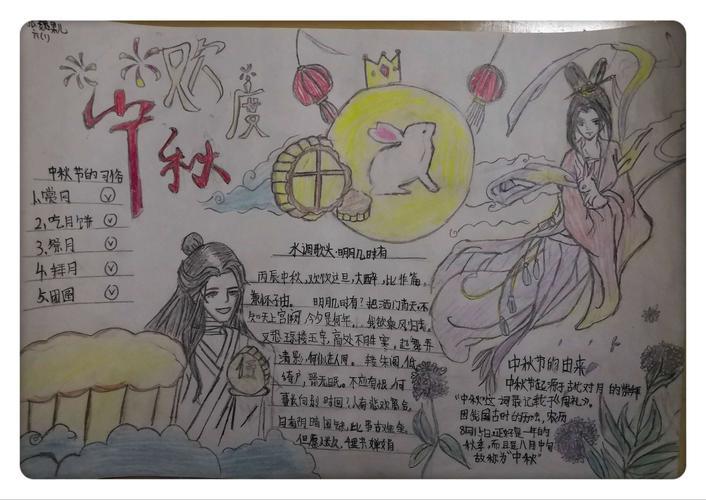 六(1)
欢度
中秋
中秋节的习俗
1.赏月
2.吃月饼
3.祭月
4.拜月
5.团圆
水调歌头·明月几时有
丙辰中秋,欢饮达旦,大醉,作此篇,
兼怀子由。 明月几时有?把酒问青天。不
知天上宫阙 今夕是何年。我欲乘风归去,
又恐琼楼玉宇,高处不胜寒,起舞弄
清影 何似在人间。 转朱阁,低
绮户,照无眠。不应有恨,何
事长向别时圆?人有悲欢离合,
月有阴晴圆缺,此事古难全。
但愿人长久,千里共婵娟
中秋节的由来
中秋节起源于古代对月的崇拜
"中秋"这一词最记载于《周礼》。
因我国古时的历法,农历
8月15日正好是一年的
秋季,而且是八月中旬
故称为"中秋"